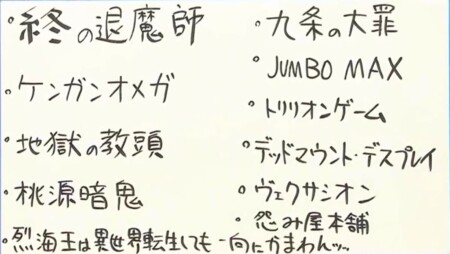 ・終の退魔師
・ケンガンオメガ
・地獄の教頭
・桃源暗鬼
・烈海王は異世界転生しても一向にかまわんッッ
・九条の大罪
・JUMBO MAX
・トリリオンゲーム
・デッドマウント・デスプレイ
・ヴェクサシオン
・怨み屋本舗